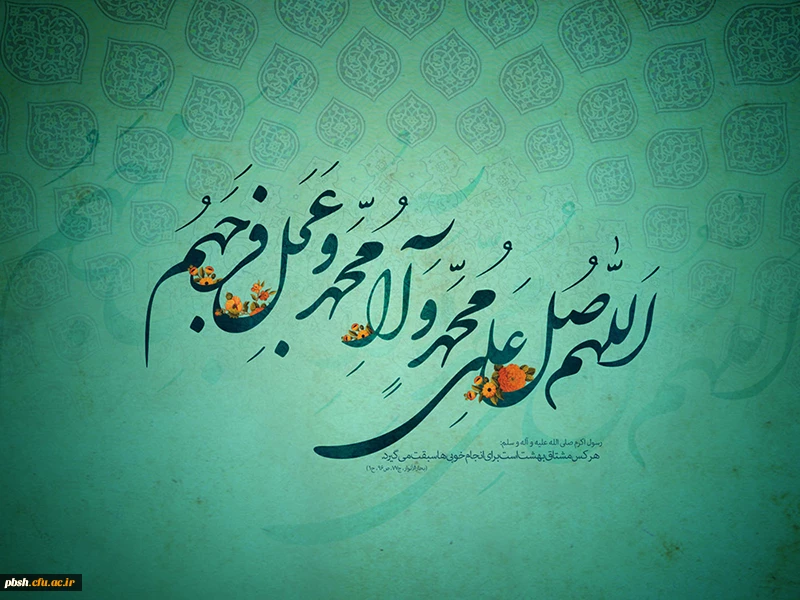 اللهم صل علی محمد و آل محمد و عجل فرجهم
رسول اکرم صلی الله علیه و آله و سلم:
هر کس مشتاق بهشت است برای انجام خوبی ها سبقت می گیرد.
(بحارالانوار، ج۷۷، ص۹۶، ح۱)
pbsh.cfu.ac.ir